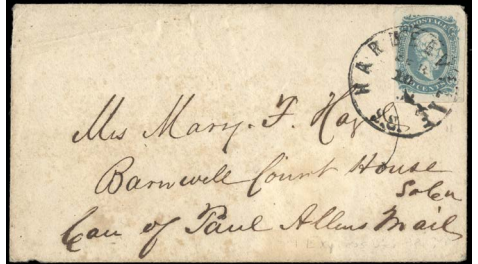 POSTAGE
CENTS
Mrs Mary. F. Hay
Barnwell Court House
So Ca
Care of Paul Allens Mail